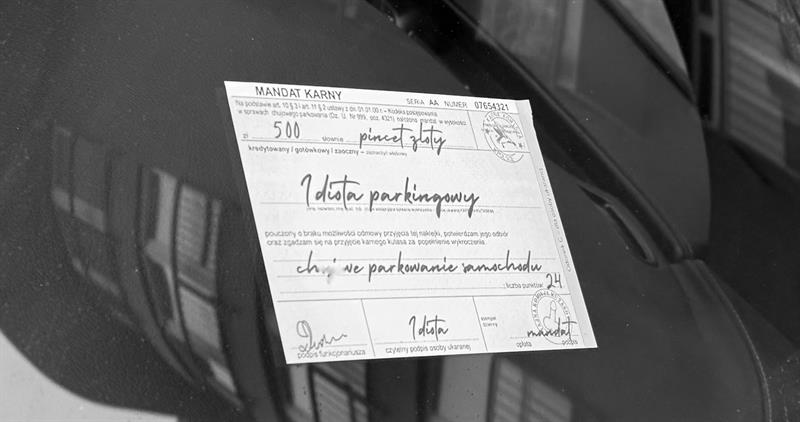 MANDAT KARNY SERIA AA NUMER 07654321
Na podstawie art. 10 § 3 i art. 11 § 2 ustawy z dn. 01.01.00 r. – Kodeks postępowania
w sprawach chujowego parkowania (Dz. U. Nr 999, poz. 4321) nałożono mandat w wysokości
zł 500 słownie pincet złoty
kredytowany / gotówkowy / zaoczny –
Idiota parkingowy
pouczony o braku możliwości odmowy przyjęcia tej naklejki, potwierdzam jego odbiór
oraz zgadzam się na przyjęcie karnego kutasa za popełnienie wykroczenia.
parkowanie samochodu
liczba punktów: 24
Idiota
mandat
podpis funkcjonariusza
czytelny podpis osoby ukaranej
opłata